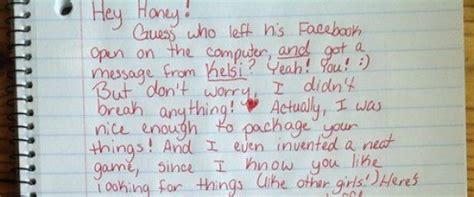 Hey Honey!
Guess who left his Facebook
open on the computer, and got a
message from Kelsi? Yeah! You! :)
But don't worry, I didn't
break anything! ♥ Actually, I was
nice enough to package your
things! And I even invented a neat
game, since I know you like
looking for things (like other girls!) Here's